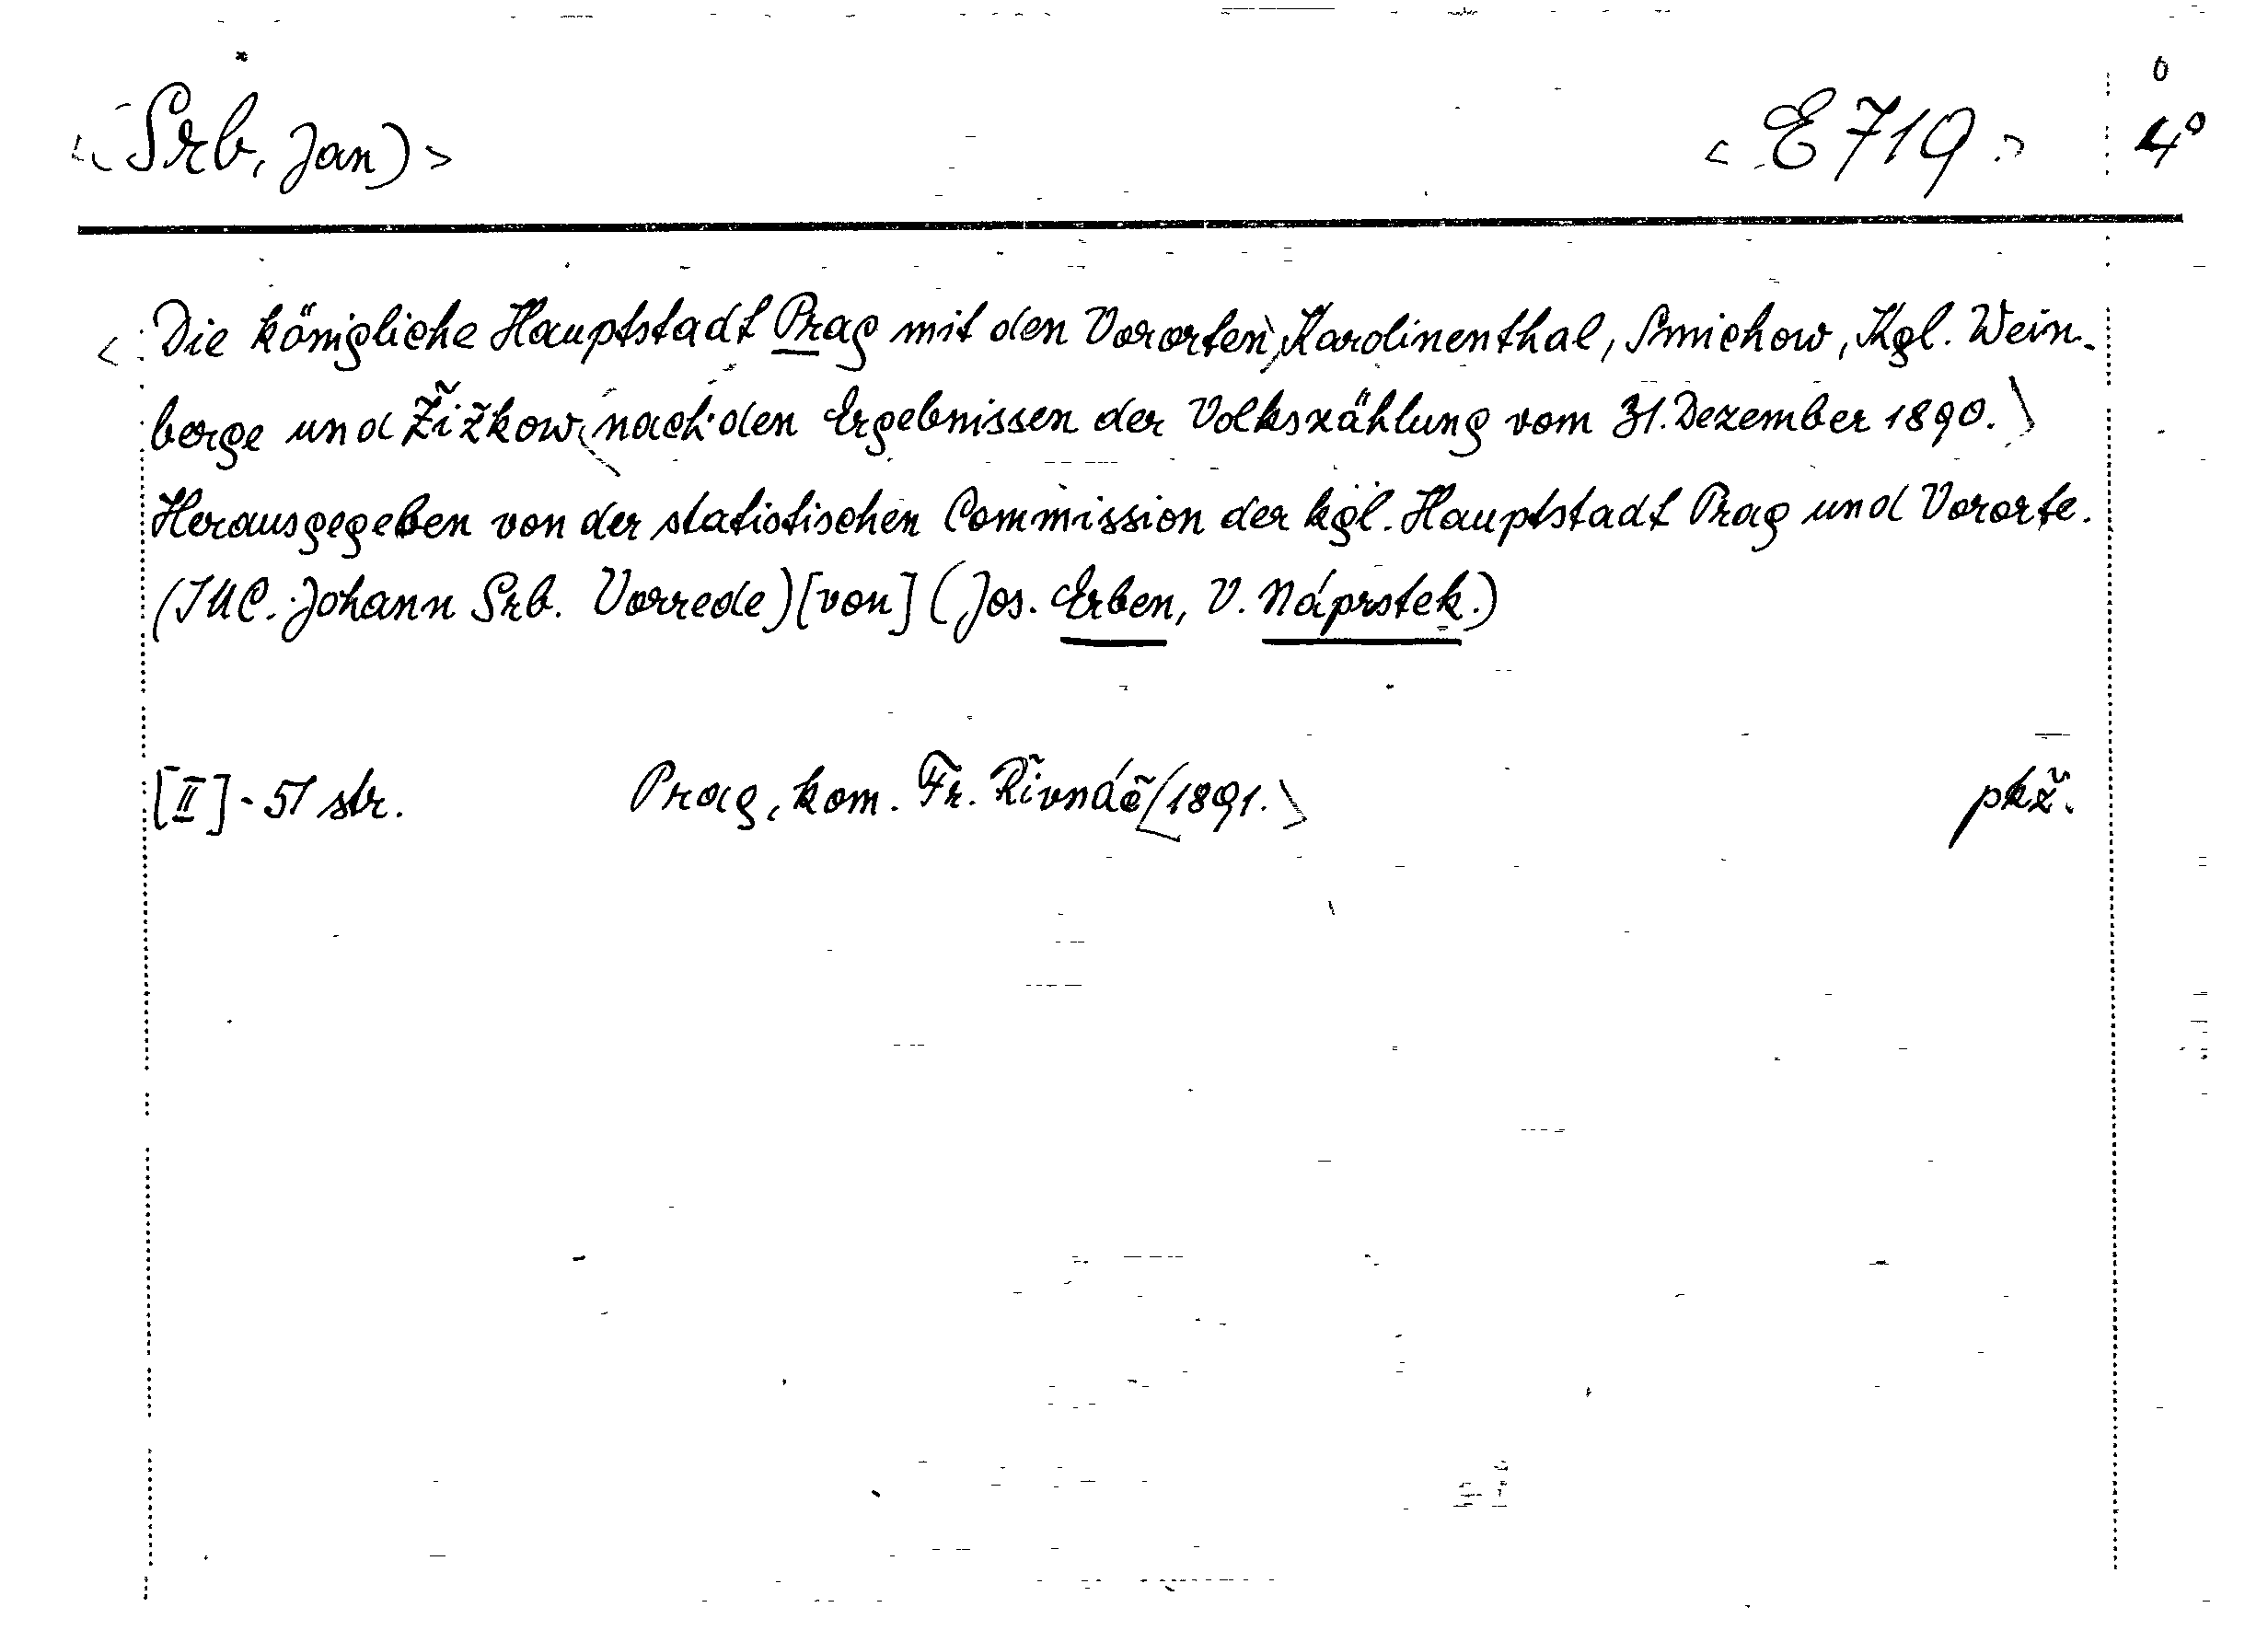 <(Srb, Jan)> <E 719> 4°
<Die königliche Hauptstadt Prag mit den Vororten, Karolinenthal, Smichow, Kgl. Wein-
berge und Žižkow, nach den Ergebnissen der Volkszählung vom 31. Dezember 1890.>
Herausgegeben von der statistischen Commission der kgl. Hauptstadt Prag und Vororte.
(JUC. Johann Srb. Vorrede) [von] (Jos. Erben, V. Náprstek.)
[II] - 51 str. Prag, kom. Fr. Řivnáč <1891.> pkž.